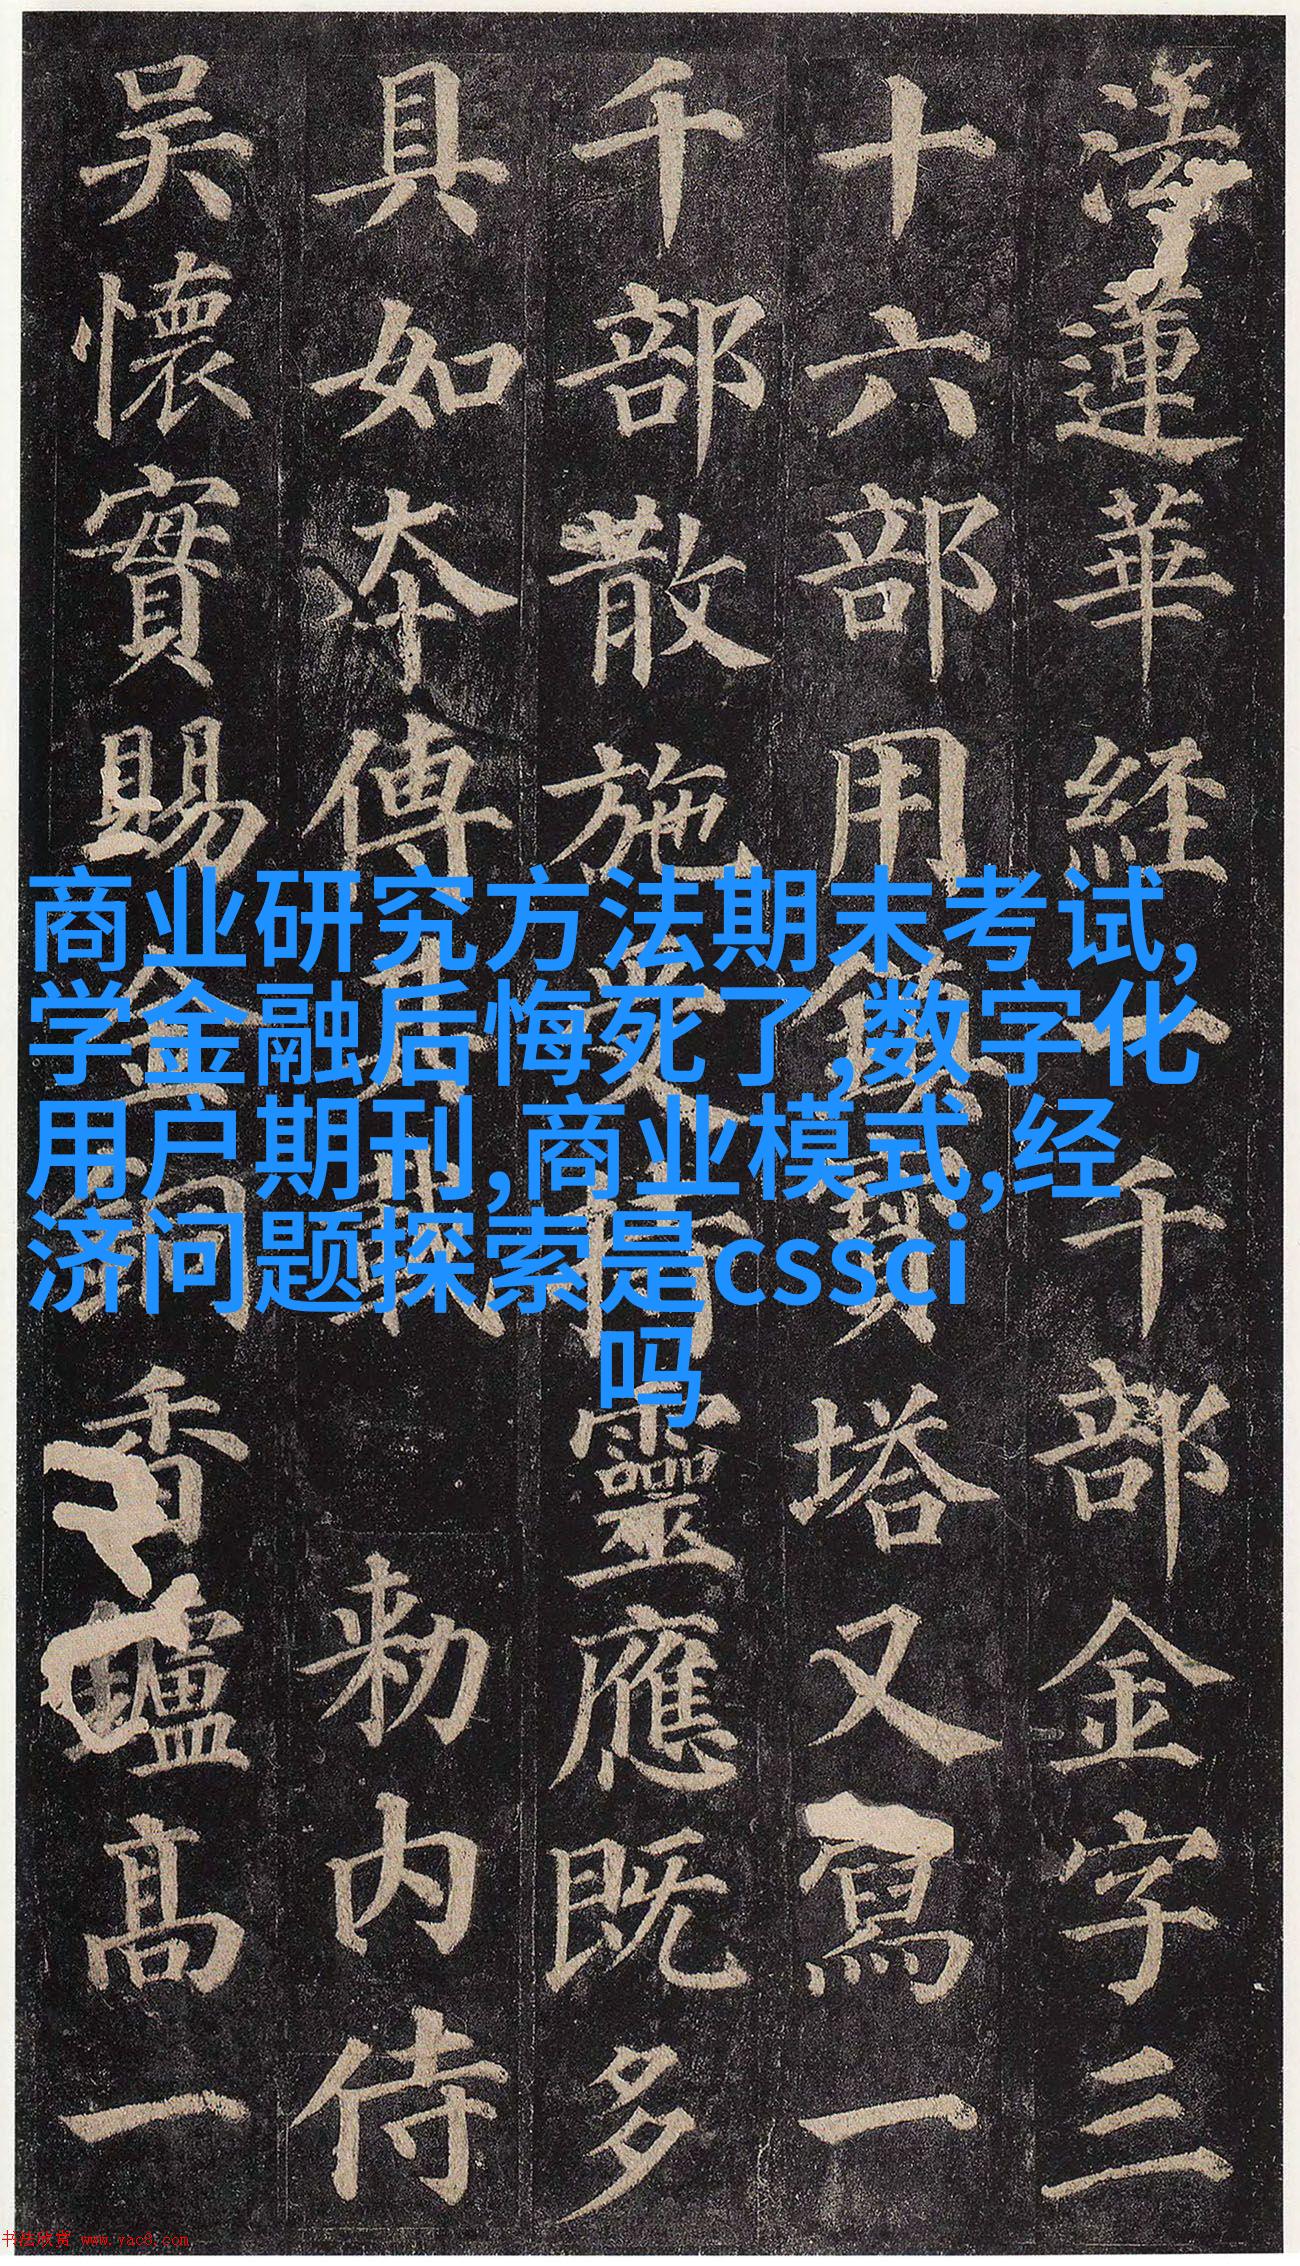 法蓮華經一千部金字三
十六部用鎮寶塔又寫一
千部散施受持靈應既多
具如本傳其載 勅內侍
吳懷實賜金銅香鑪高一
商业研究方法期末考试,
学金融后悔死了,数字化
用户期刊,商业模式,经
济问题探索是cssci
吗
书法欣赏 www.yac8.com